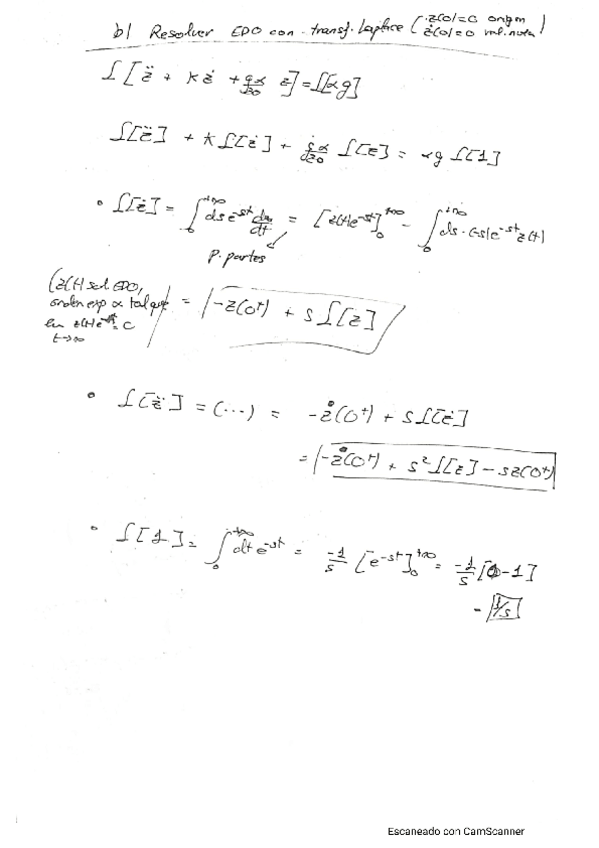 b) Resolver EDO con transf. Laplace ( z(0)=0 origen
ż(0)=0 vel. nula )
L[z̈ + kż + gα/z0 z] = L[αg]
L[z̈] + k L[ż] + gα/z0 L[z] = αg L[1]
• L[ż] = ∫₀^{+∞} ds e^{-st} dz/dt = [z(t)e^{-st}]₀^{+∞} - ∫₀^{+∞} ds·(-s)e^{-st} z(t)
p. partes
(z(t) sol EDO,
orden exp α tal que
lim z(t)e^{-st}=0
t→∞
= -z(0⁺) + s L[z]
• L[z̈] = (...) = -ż(0⁺) + s L[ż]
= -ż(0⁺) + s² L[z] - s z(0⁺)
• L[1] = ∫₀^{+∞} dt e^{-st} = -1/s [e^{-st}]₀^{+∞} = -1/s [0-1]
= 1/s
Escaneado con CamScanner